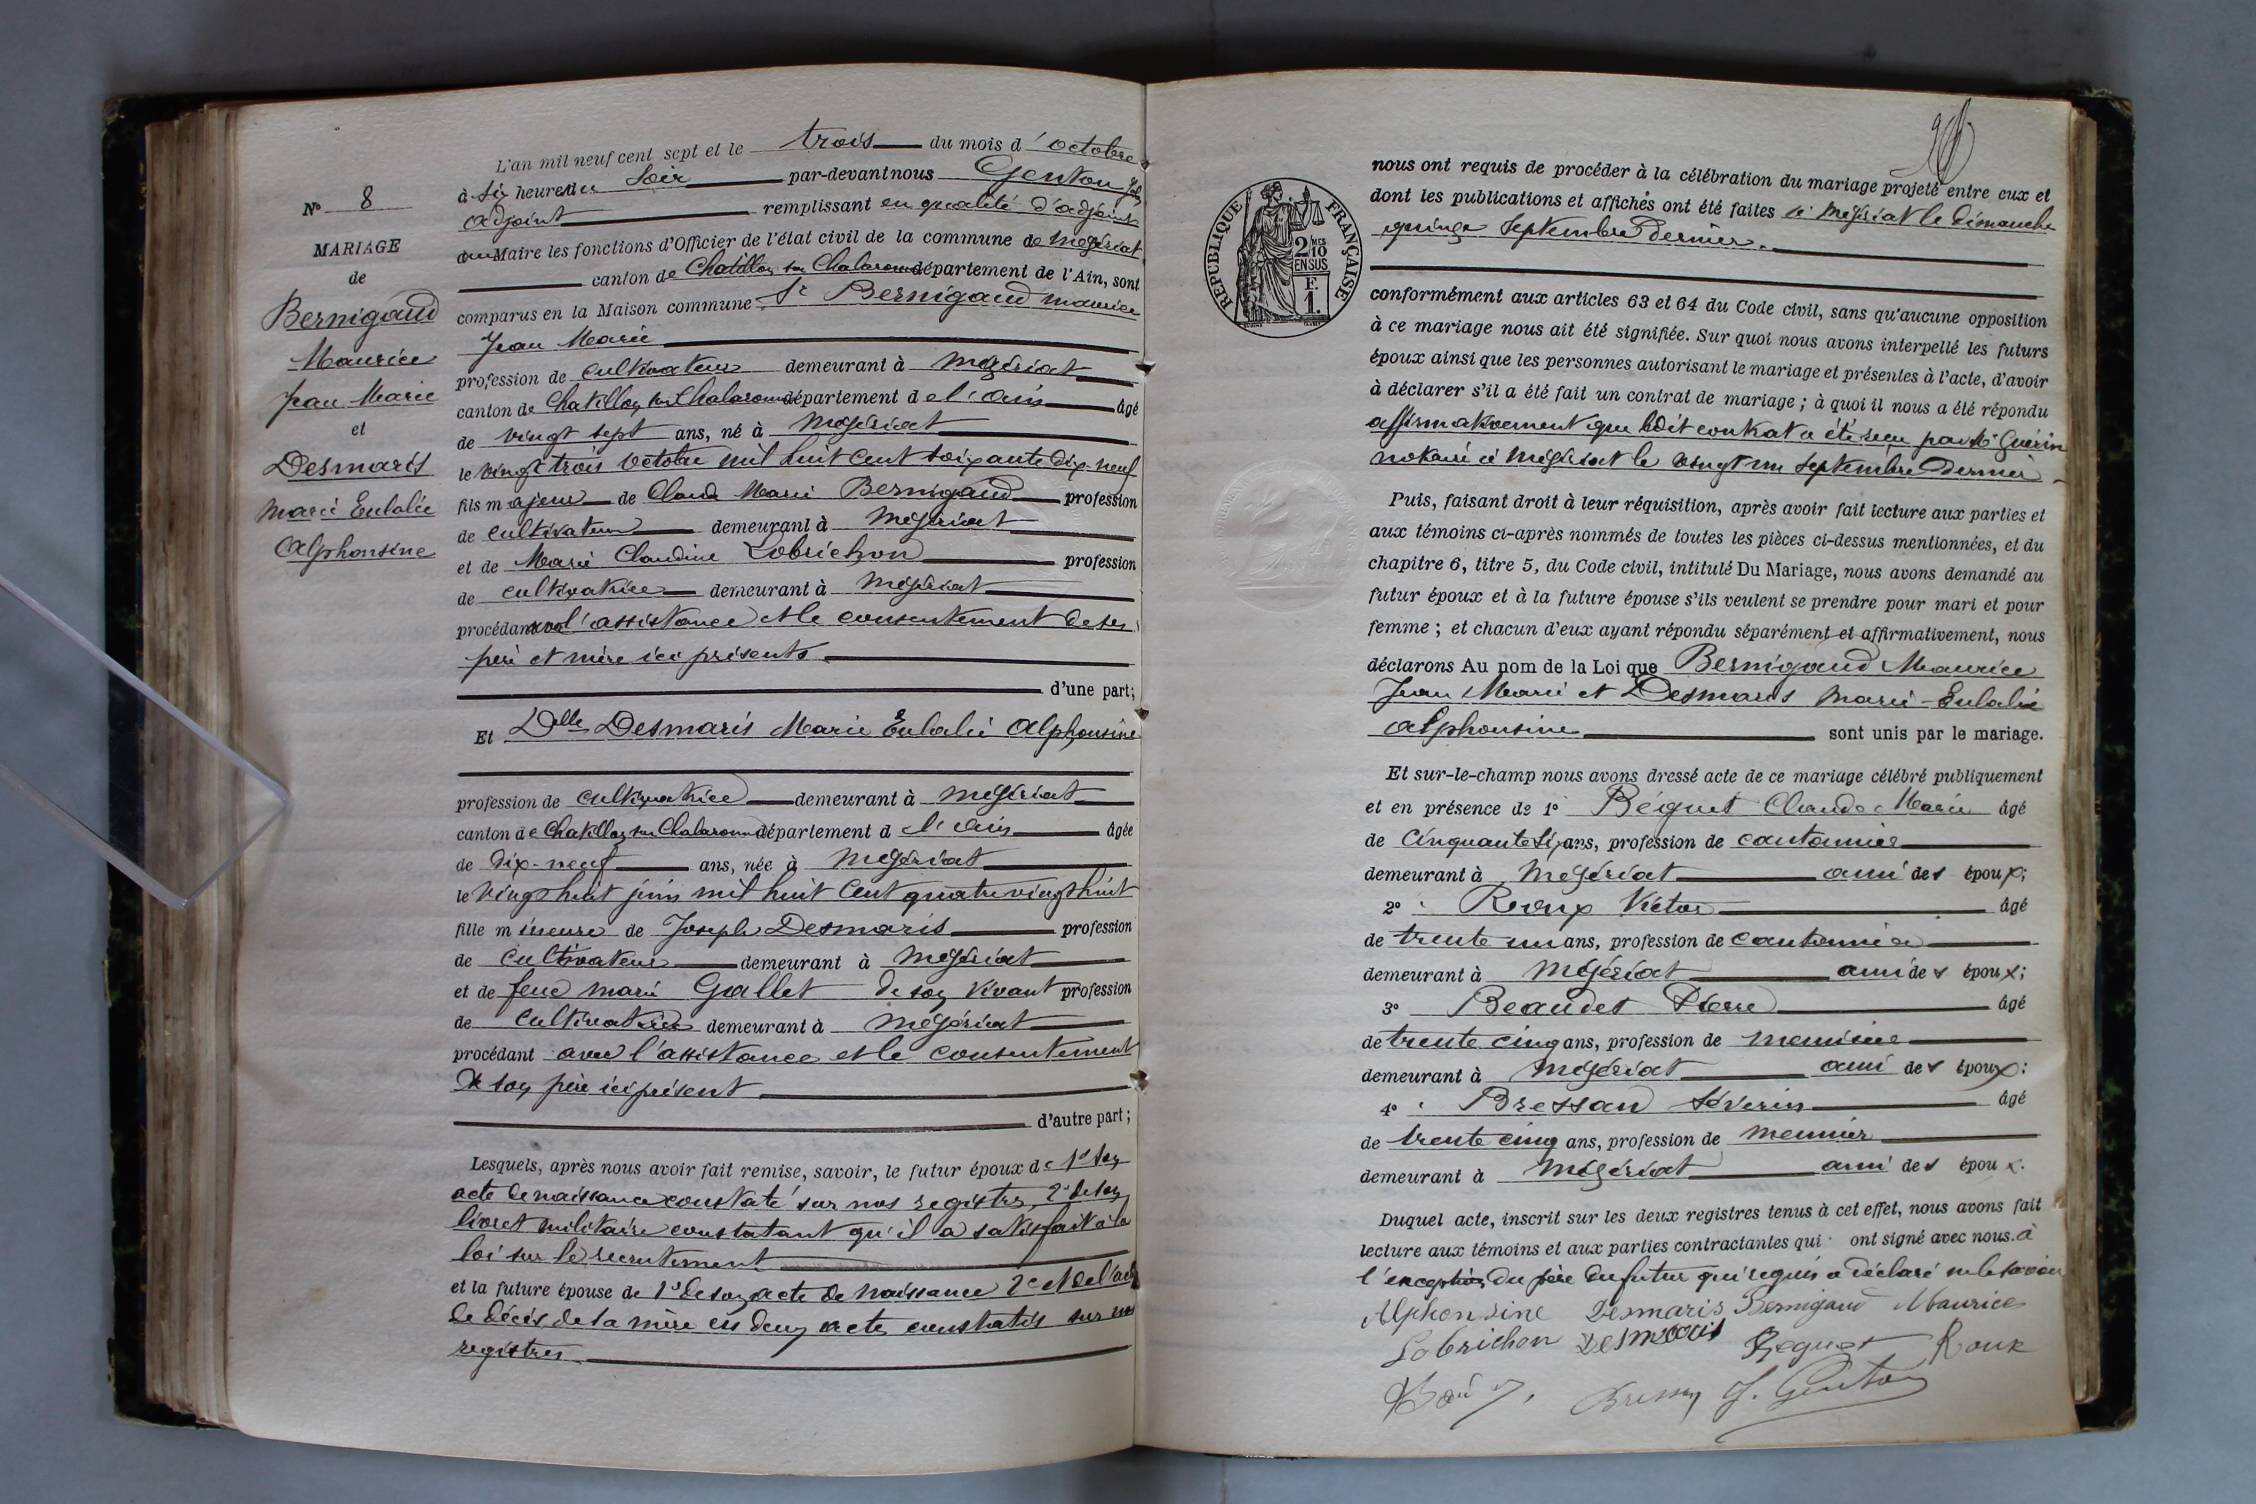 N° 8
MARIAGE
de
Bernigaud
Maurice
Jean Marie
et
Desmaris
Marie Eulalie
Alphonsine
L'an mil neuf cent sept et le trois du mois d'octobre
à six heures du soir par-devant nous Genton
adjoint remplissant en qualité d'adjoint
au Maire les fonctions d'Officier de l'état civil de la commune de Mézériat
canton de Chatillon sur Chalaronne département de l'Ain, sont
comparus en la Maison commune Sr Bernigaud Maurice
Jean Marie
profession de cultivateur demeurant à Mézériat
canton de Chatillon sur Chalaronne département de l'Ain âgé
de vingt sept ans, né à Mézériat
le vingt trois octobre mil huit cent soixante dix-neuf
fils majeur de Claude Marie Bernigaud profession
de cultivateur demeurant à Mézériat
et de Marie Claudine Lobrichon profession
de cultivatrice demeurant à Mézériat
procédant avec l'assistance et le consentement de ses
père et mère ici présents
d'une part;
Et Delle Desmaris Marie Eulalie Alphonsine
profession de cultivatrice demeurant à Mézériat
canton de Chatillon sur Chalaronne département d l'Ain âgée
de dix-neuf ans, née à Mézériat
le vingt huit juin mil huit cent quatre vingt huit
fille mineure de Joseph Desmaris profession
de cultivateur demeurant à Mézériat
et de feue Marie Gallet de son vivant profession
de cultivatrice demeurant à Mézériat
procédant avec l'assistance et le consentement
de son père ici présent
d'autre part;
Lesquels, après nous avoir fait remise, savoir, le futur époux de 1° son
acte de naissance constaté sur nos registres, 2° de son
livret militaire constatant qu'il a satisfait à la
loi sur le recrutement
et la future épouse de 1° de son acte de naissance 2° et de l'acte
de décès de sa mère ces deux actes constatés sur nos
registres.
26
RÉPUBLIQUE FRANÇAISE
2 MES
10
EN SUS
F.
1.
nous ont requis de procéder à la célébration du mariage projeté entre eux et
dont les publications et affiches ont été faites à Mézériat le dimanche
quinze septembre dernier.
conformément aux articles 63 et 64 du Code civil, sans qu'aucune opposition
à ce mariage nous ait été signifiée. Sur quoi nous avons interpellé les futurs
époux ainsi que les personnes autorisant le mariage et présentes à l'acte, d'avoir
à déclarer s'il a été fait un contrat de mariage ; à quoi il nous a été répondu
affirmativement que ledit contrat a été reçu par Me Guérin
notaire à Mézériat le vingt un septembre dernier
Puis, faisant droit à leur réquisition, après avoir fait lecture aux parties et
aux témoins ci-après nommés de toutes les pièces ci-dessus mentionnées, et du
chapitre 6, titre 5, du Code civil, intitulé Du Mariage, nous avons demandé au
futur époux et à la future épouse s'ils veulent se prendre pour mari et pour
femme ; et chacun d'eux ayant répondu séparément et affirmativement, nous
déclarons Au nom de la Loi que Bernigaud Maurice
Jean Marie et Desmaris Marie-Eulalie
Alphonsine sont unis par le mariage.
Et sur-le-champ nous avons dressé acte de ce mariage célébré publiquement
et en présence de 1° Béguet Claude Marie âgé
de cinquante six ans, profession de cantonnier
demeurant à Mézériat ami des époux;
2° Roux Victor âgé
de trente un ans, profession de cantonnier
demeurant à Mézériat ami des époux;
3° Beaudet Pierre âgé
de trente cinq ans, profession de menuisier
demeurant à Mézériat ami des époux;
4° Bressan Séverin âgé
de trente cinq ans, profession de meunier
demeurant à Mézériat ami des époux.
Duquel acte, inscrit sur les deux registres tenus à cet effet, nous avons fait
lecture aux témoins et aux parties contractantes qui ont signé avec nous. à
l'exception du père du futur qui requis a déclaré ne le savoir
Alphonsine Desmaris Bernigaud Maurice
Lobrichon Desmaris Beguet Roux
J. Genton